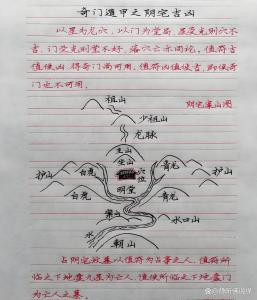 奇门遁甲之阴宅吉凶
以星为龙穴,以门为堂局,星受克则穴不
吉,门受克则堂不好,落六亡亦同论,值符吉
值使凶,得奇门尚可用,值符凶值使吉,即使奇
门也不可用。
阴宅寻山图
祖山
少祖山
龙脉
主山
坐山
护山
白虎
白虎
穴位
青龙
青龙
护山
明堂
案山
水口山
水
朝山
占阴宅放墓以值符为占事之人,值符所
临之下地盘九星为亡人,值使所临之下地盘门
为亡人之墓。